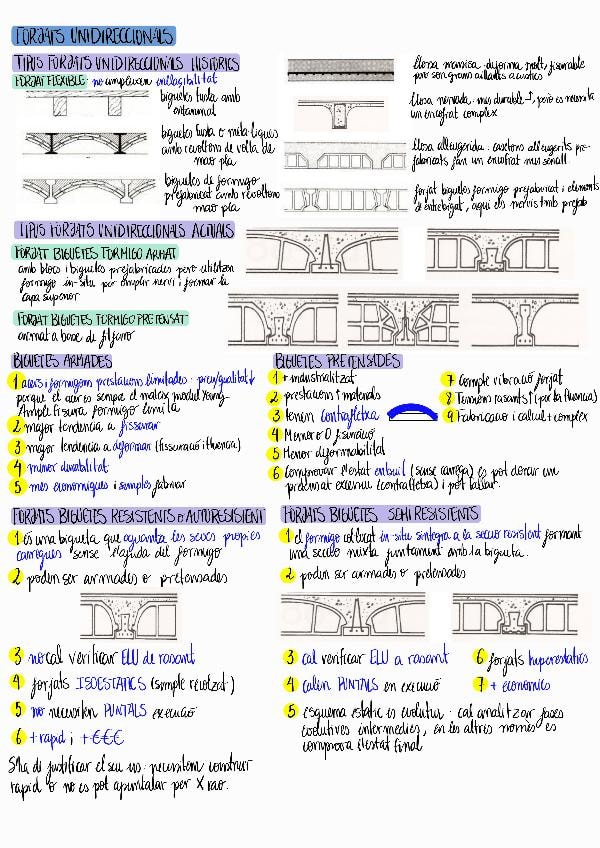 FORJATS UNIDIRECCIONALS
TIPUS FORJATS UNIDIRECCIONALS HISTÒRICS
FORJAT FLEXIBLE: no compleixen
biguetes fusta amb
biguetes fusta o metàl·liques
amb revoltons de volta de
maó pla
biguetes de formigó
prefabricat amb revoltons
maó pla
llosa massissa: deforma molt, fisurable
però són grans aïllants acústics
llosa nervada: més durable ↑, però es necessita
un encofrat complex
llosa alleugerida: casetons alleugerits pre-
fabricats fan un encofrat més senzill
forjat biguetes formigó prefabricat i elements
d'entrebigat, aquí els nervis tmb prefab
TIPUS FORJATS UNIDIRECCIONALS ACTUALS
FORJAT BIGUETES FORMIGÓ ARMAT
amb blocs i biguetes prefabricades però utilitzen
formigó in-situ per omplir nervi i formar la
capa superior
FORJAT BIGUETES FORMIGÓ PRETENSAT
armat a base de filferro
BIGUETES ARMADES
1 acers i formigons prestacions limitades: preu/qualitat↓
perquè el acer és sempre el mateix, modul Young-
Ample fisura formigó limita
2 major tendència a fissurar
3 major tendència a deformar (fissuració i fluència)
4 menor durabilitat
5 més econòmiques i simples fabricar
BIGUETES PRETENSADES
1 + industrialitzat
2 prestacions ↑ materials
3 tenen contrafletxa
4 Menor o 0 fisuració
5 Menor deformabilitat
6 Comprovar l'estat en buit (sense càrrega) es pot donar un
precomprimit excessiu (contrafletxa) i pot fallar.
7 Comple vibració forjat
8 Tensions rasants ↑ (per la fluència)
9 Fabricació i càlcul + complex
FORJATS BIGUETES RESISTENTS o AUTORESISTENT
1 és una bigueta que aguanta les seves pròpies
càrregues sense l'ajuda del formigó
2 poden ser armades o pretensades
3 no cal verificar ELU de rasant
4 forjats ISOESTÀTICS (simple recolzat)
5 no necessiten PUNTALS execució
6 + ràpid i + €€€
S'ha de justificar el seu ús: necessitem construir
ràpid o no es pot apuntalar per X raó.
FORJATS BIGUETES SEMIRESISTENTS
1 el formigó col·locat in-situ s'integra a la secció resistent formant
una secció mixta juntament amb la bigueta.
2 poden ser armades o pretensades
3 cal verificar ELU a rasant
4 calen PUNTALS en execució
5 esquema estàtic és evolutiu: cal analitzar fases
evolutives intermèdies, en les altres només es
comprova l'estat final
6 forjats hiperestàtics
7 + econòmics